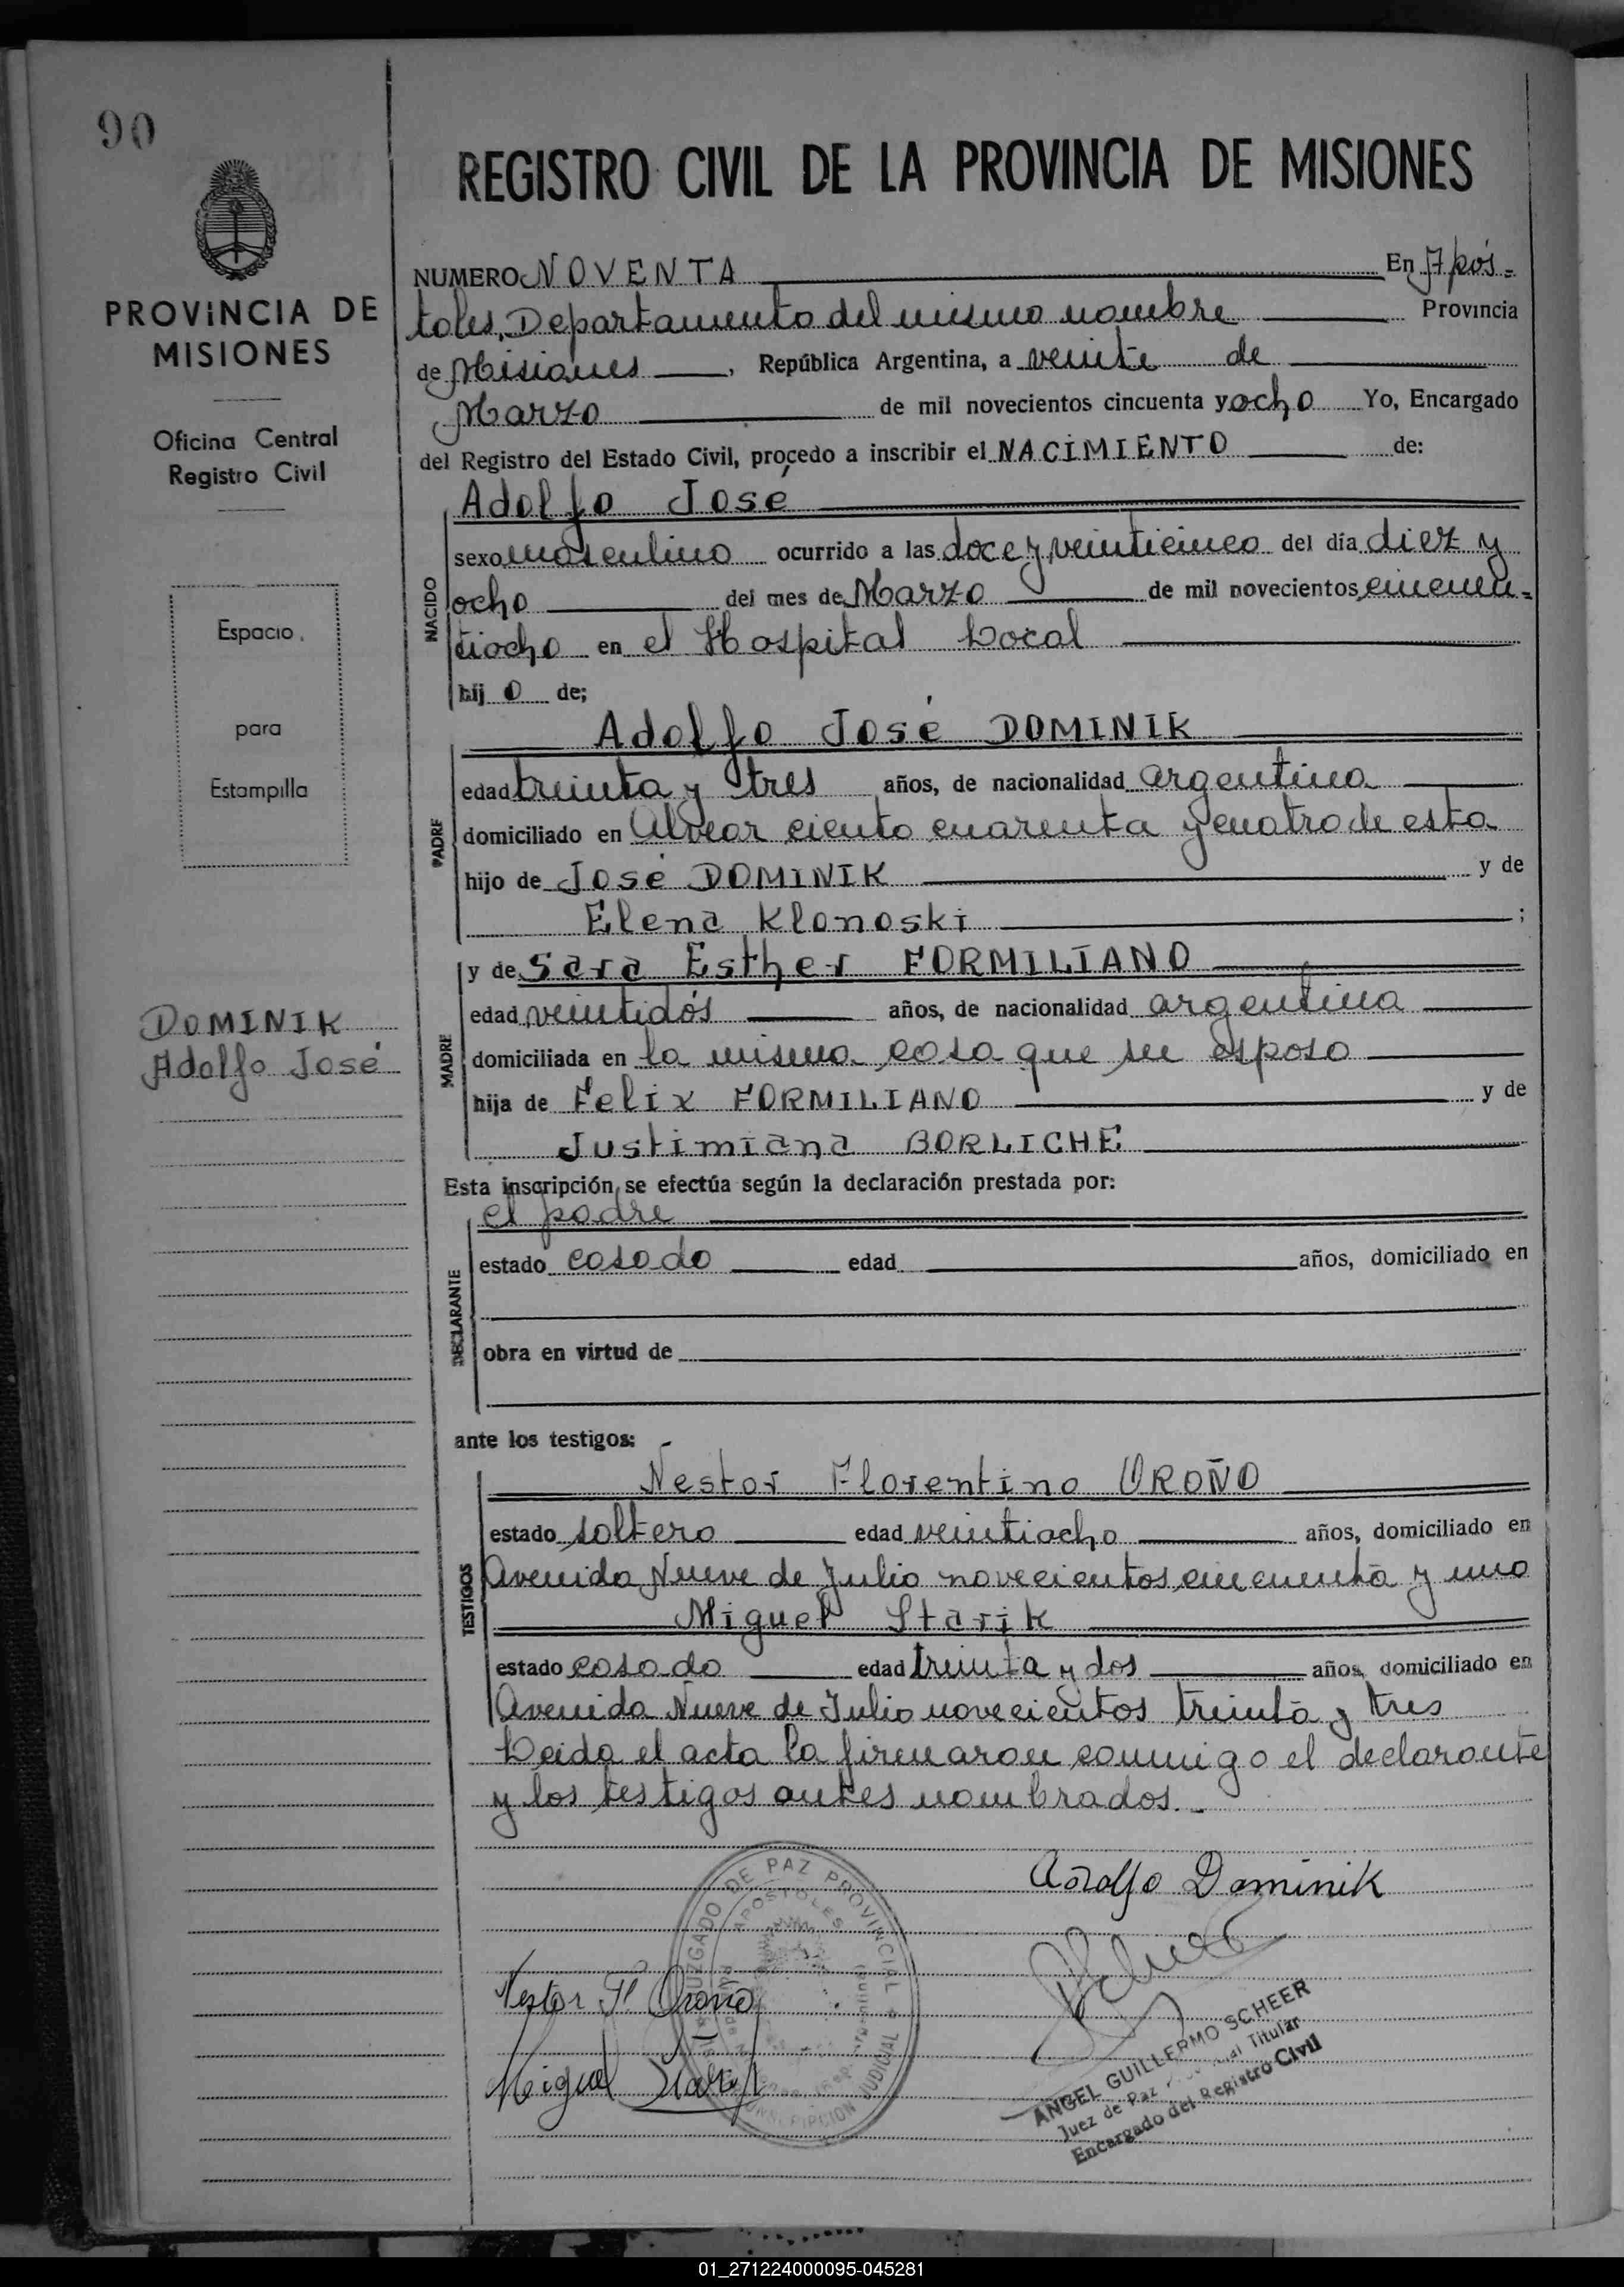 90
REGISTRO CIVIL DE LA PROVINCIA DE MISIONES
PROVINCIA DE
MISIONES
Oficina Central
Registro Civil
Espacio
para
Estampilla
DOMINIK
Adolfo José
NUMERO NOVENTA En Após-
toles, Departamento del mismo nombre Provincia
de Misiones, República Argentina, a veinte de
Marzo de mil novecientos cincuenta y ocho Yo, Encargado
del Registro del Estado Civil, procedo a inscribir el NACIMIENTO de:
NACIDO
Adolfo José
sexo masculino ocurrido a las doce y veinticinco del día diez y
ocho del mes de Marzo de mil novecientos cincuen-
tiocho en el Hospital Local
hijo de;
PADRE
Adolfo José DOMINIK
edad treinta y tres años, de nacionalidad argentina
domiciliado en Alvear ciento cuarenta y cuatro de esta
hijo de José DOMINIK y de
Elena Klonoski ;
MADRE
y de Sara Esther FORMILIANO
edad veintidós años, de nacionalidad argentina
domiciliada en la misma casa que su esposo
hija de Felix FORMILIANO y de
Justimiana BORLICHE
Esta inscripción se efectúa según la declaración prestada por:
DECLARANTE
el padre
estado casado edad años, domiciliado en
obra en virtud de
ante los testigos:
TESTIGOS
Nestor Florentino OROÑO
estado soltero edad veintiocho años, domiciliado en
Avenida Nueve de Julio novecientos cincuenta y uno
Miguel Starik
estado casado edad treinta y dos años, domiciliado en
Avenida Nueve de Julio novecientos treinta y tres
Leida el acta la firmaron conmigo el declarante
y los testigos antes nombrados.-
Adolfo Dominik
JUZGADO DE PAZ PROVINCIAL
APOSTOLES
JUDICIAL
Nestor Fl Oroño
Miguel Starik
ANGEL GUILLERMO SCHEER
Juez de Paz Titular
Encargado del Registro Civil
01_271224000095-045281